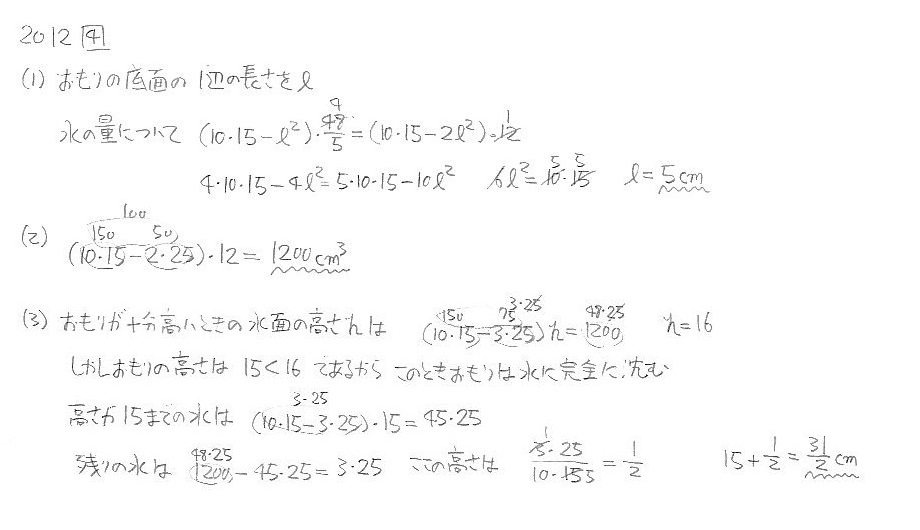 2012 4
(1) おもりの底面の1辺の長さをl
4 1
水の量について (10·15-l²)·48/5=(10·15-2l²)·12
4·10·15-4l²=5·10·15-10l² 6l²=10·15 5 5 l=5cm
100
(2) 150 50
(10·15-2·25)·12=1200cm³
150 75 3·25 48·25
(3) おもりが十分高いときの水面の高さhは (10·15-3·25)h=1200 h=16
しかしおもりの高さは 15<16 であるから このときおもりは水に完全に沈む
3·25
高さが15までの水は (10·15-3·25)·15=45·25
48·25 1
残りの水は 1200-45·25=3·25 ここの高さは 3·25/10·15 5=1/2 15+1/2=31/2cm